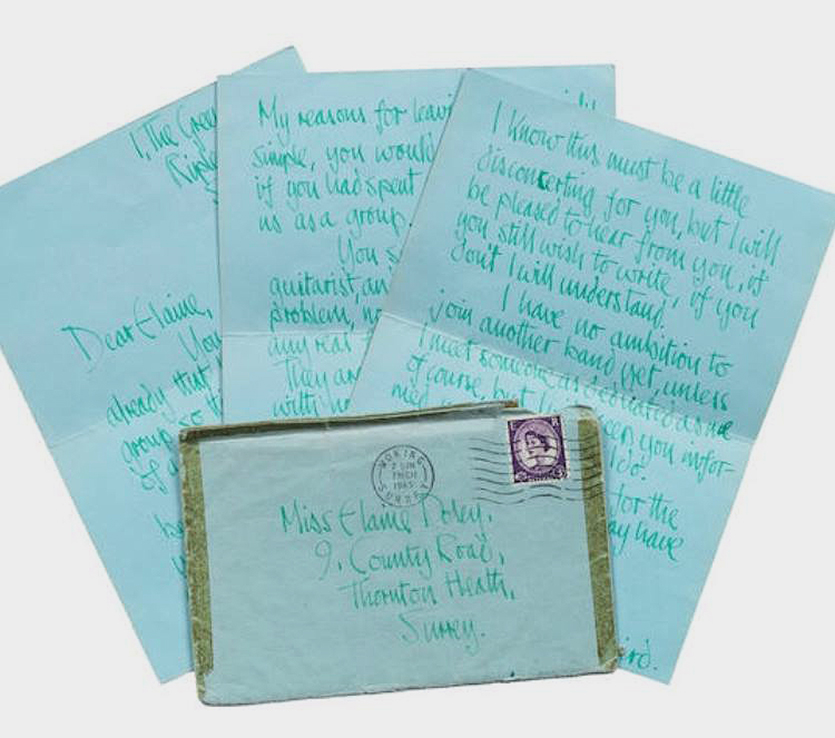 1, The Gree
Ripl
Dear Elaine,
You
already that
group, so
of a
My reasons for leavi
simple, you would
if you had spent
us as a group.
You s
guitarist, an
problem, no
any real
They are
with
I know this must be a little
disconcerting for you, but I will
be pleased to hear from you, if
you still wish to write, if you
don't I will understand.
I have no ambition to
join another band yet, unless
I meet someone as dedicated as me
of course, but I keep you infor-
med
for the
ay have
ird.
WOKING
2 JUN
1965
SURREY
Miss Elaine Poley,
9, County Road,
Thornton Heath,
Surrey.